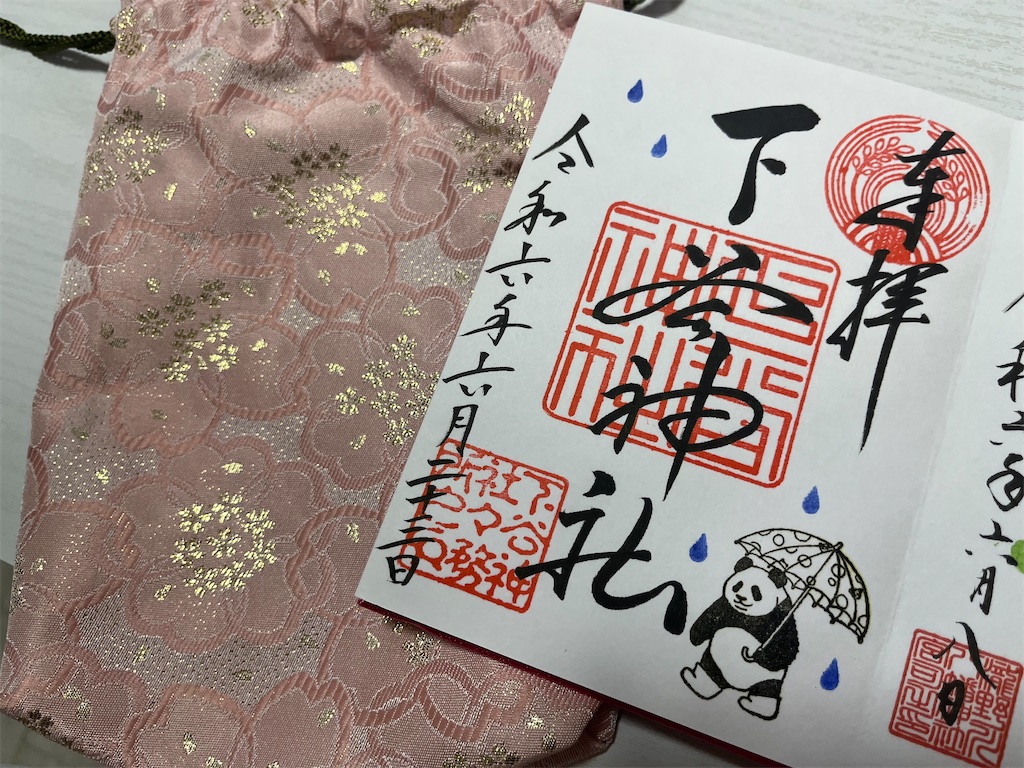 奉拝
下谷神社
令和六年六月二十三日
下谷神
社々務
所之印
和六年六月八日